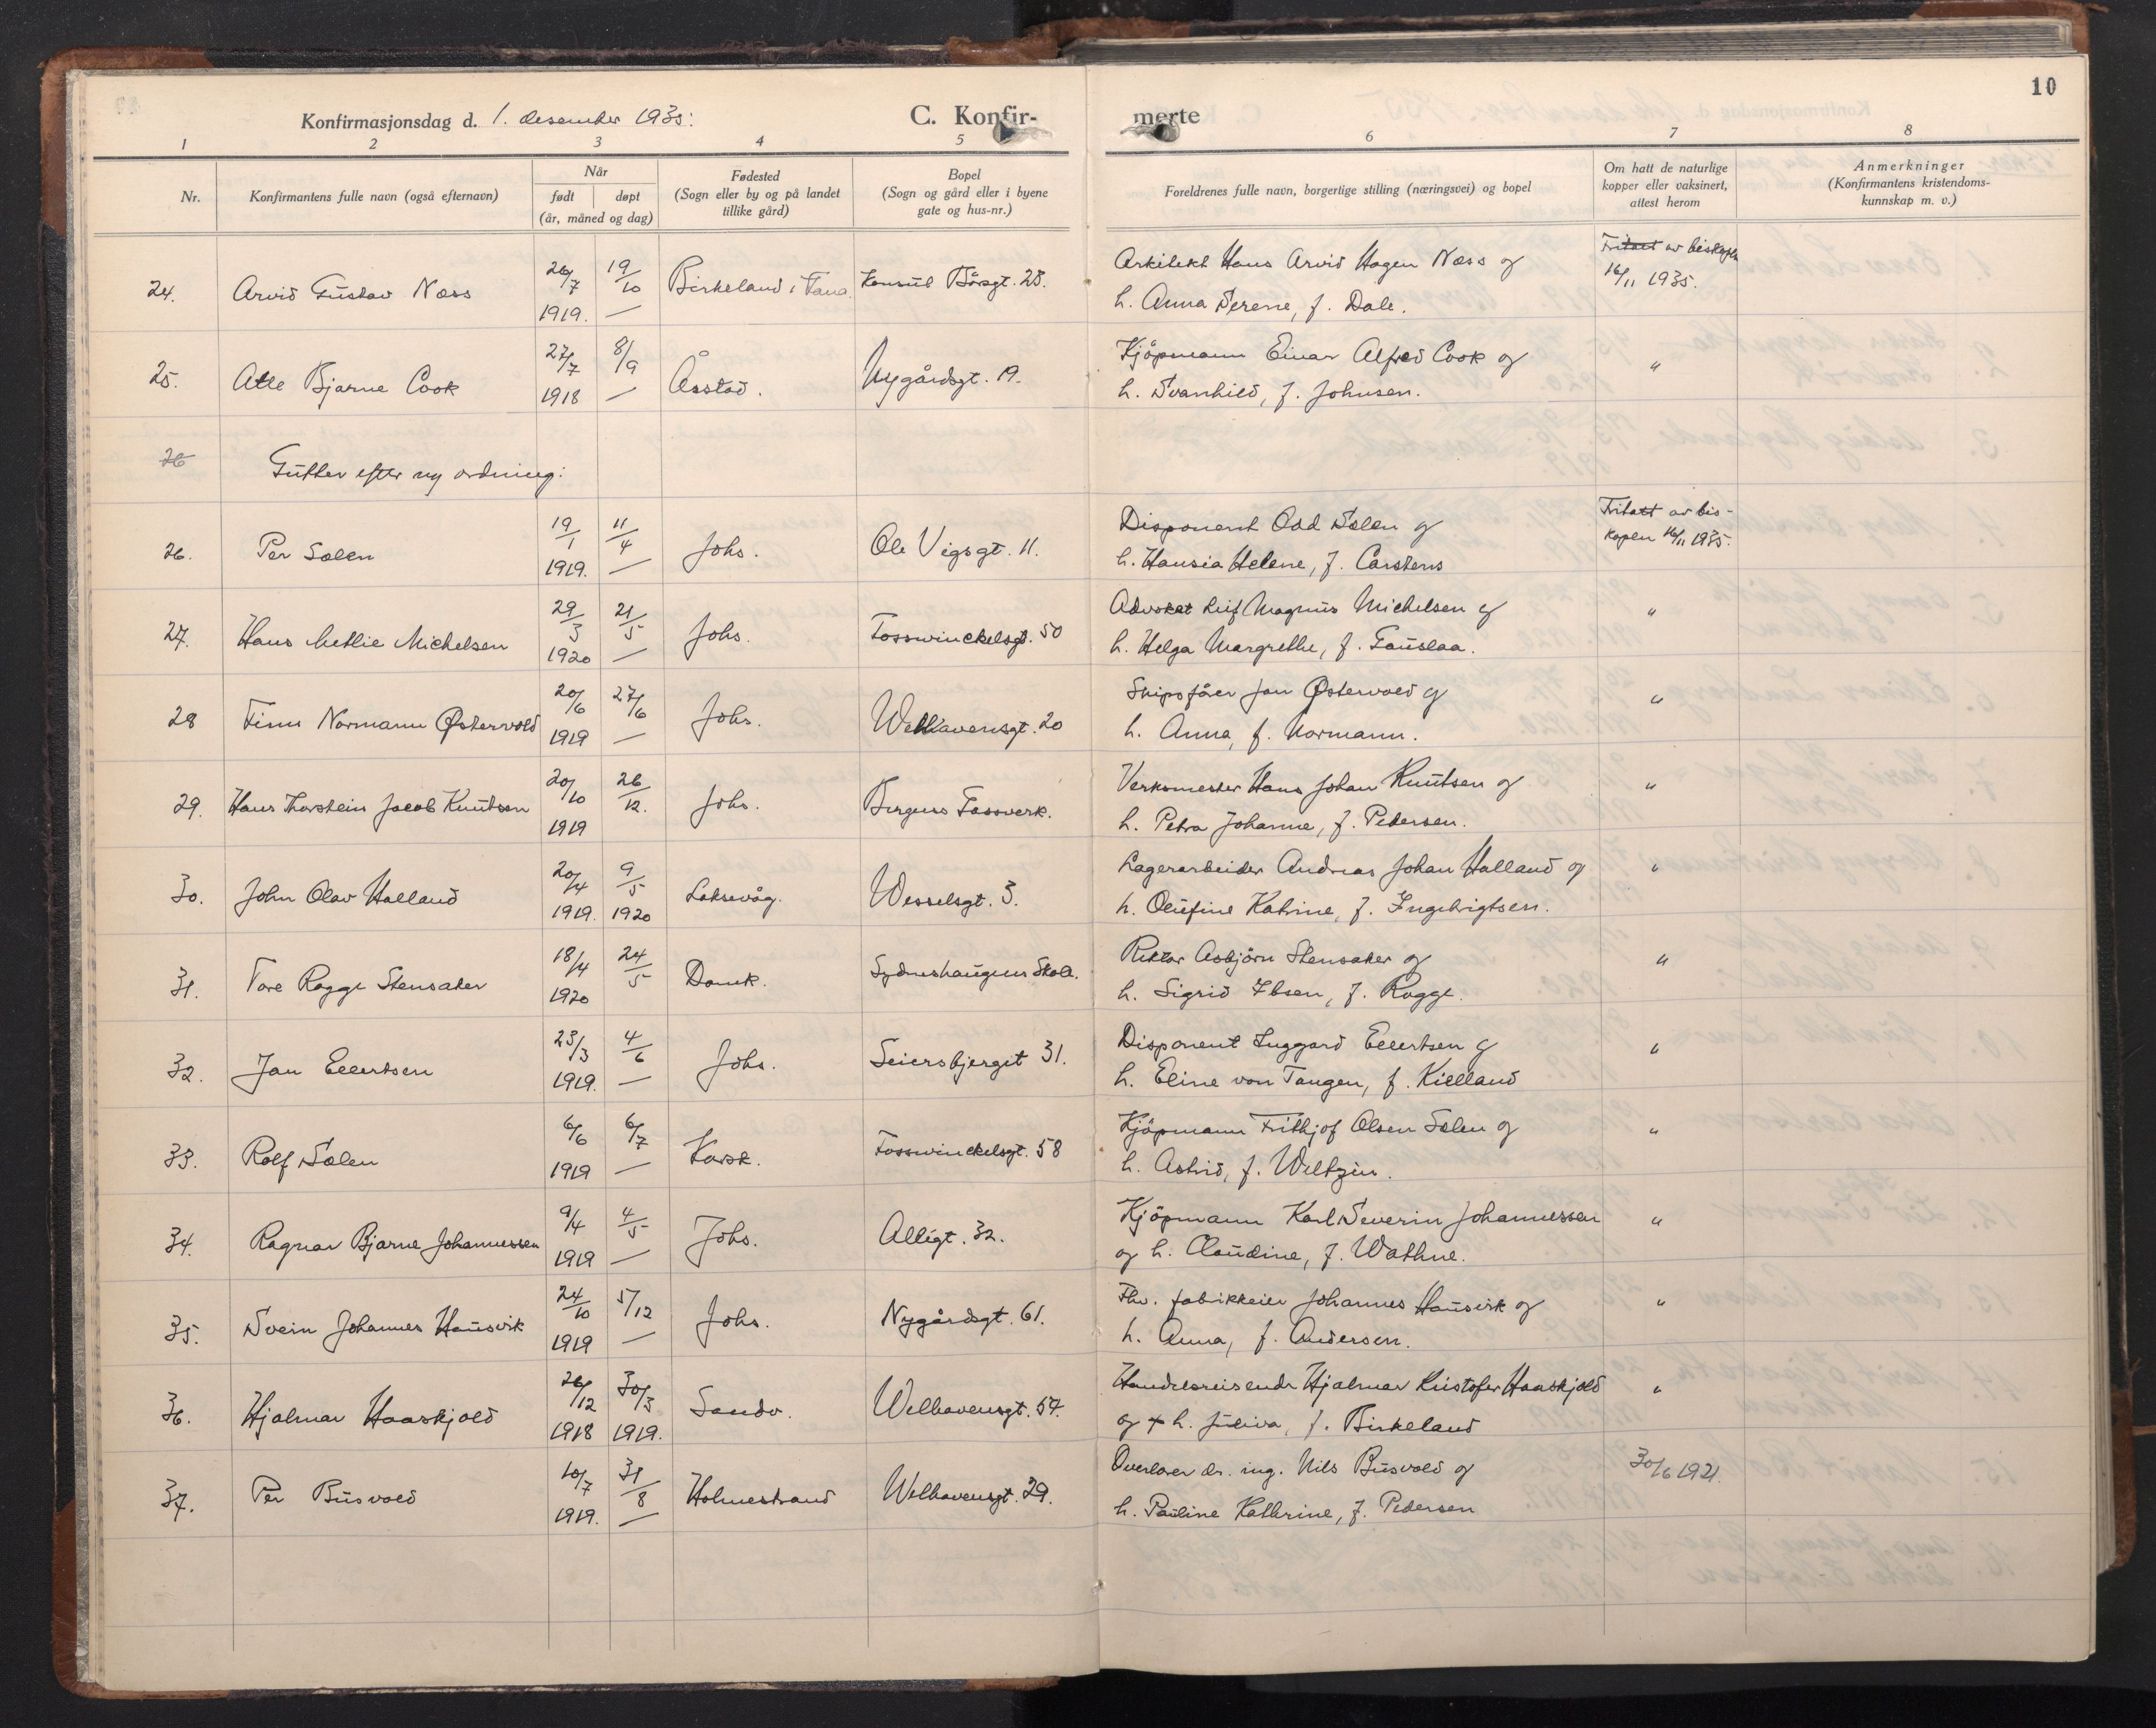 10
Konfirmasjonsdag d. 1. desember 1935.
C. Konfir-
merte
1 2 3 4 5 6 7 8
Nr.
Konfirmantens fulle navn (også efternavn)
Når
født døpt
(år, måned og dag)
Fødested
(Sogn eller by og på landet
tillike gård)
Bopel
(Sogn og gård eller i byene
gate og hus-nr.)
Foreldrenes fulle navn, borgertige stilling (næringsvei) og bopel
Om hatt de naturlige
kopper eller vaksinert,
attest herom
Anmerkninger
(Konfirmantens kristendoms-
kunnskap m. v.)
24. Arvid Gustav Næss 26/7 1919. 19/10 — Birkeland i Fana. Konsul Børsgt. 28. Arkitekt Hans Arvid Hagen Næss og
h. Anna Serene, f. Dale. Fritatt av biskopen
16/11 1935.
25. Atle Bjarne Cook 27/7 1918 8/9 — Åsstad. Nygårdsgt. 19. Kjøpmann Einar Alfred Cook og
h. Svanhild, f. Johnsen. "
26 Gutter efter ny ordning:
26. Per Sælen 19/1 1919. 11/4 — Johs. Ole Vigsgt. 11. Disponent Odd Sælen og
h. Hansia Helene, f. Carstens Fritatt av bis-
kopen 16/11 1935.
27. Hans Methie Michelsen 29/3 1920 21/5 — Johs. Fosswinckelsgt. 50 Advokat Leif Magnus Michelsen og
h. Helga Margrethe, f. Gauslaa. "
28 Finn Normann Østervold 20/6 1919 27/6 — Johs. Welhavensgt. 20 Skipsfører Jan Østervold og
h. Anna, f. Normann. "
29. Hans Thorstein Jacob Knutsen 20/10 1919 26/12. Johs. Bergens Gassverk. Verksmester Hans Johan Knutsen og
h. Petra Johanne, f. Pedersen. "
30. John Olav Halland 20/4 1919. 9/5 1920 Laksevåg. Wesselsgt. 3. Lagerarbeider Andreas Johan Halland og
h. Olufine Katrine, f. Ingebrigtsen. "
31. Tore Rogge Stensaker 18/4 1920 24/5 Domk. Sydneshaugen Skole. Rektor Asbjørn Stensaker og
h. Sigrid Ibsen, f. Rogge. "
32. Jan Ellertsen 23/3 1919. 4/6 — Johs. Seiersbjerget 31. Disponent Inggard Ellertsen og
h. Eline von Tangen, f. Kielland "
33. Rolf Sælen 6/6 1919 6/7 — Korsk. Fosswinckelsgt. 58 Kjøpmann Frithjof Olsen Sælen og
h. Astrid, f. Weltzin. "
34. Ragnar Bjarne Johannessen 9/4 1919 4/5 — Johs. Allégt. 32. Kjøpmann Karl Severin Johannessen
og h. Claudine, f. Wathne. "
35. Svein Johannes Hausvik 24/10 1919 5/12 — Johs. Nygårdsgt. 61. Fhv. fabrikkeier Johannes Hausvik og
h. Anna, f. Andersen. "
36. Hjalmar Haaskjold 26/12 1918 30/3 1919. Sandv. Welhavensgt. 57. Handelsreisende Hjalmar Kristofer Haaskjold
og h. Juliva, f. Birkeland "
37. Per Busvold 10/7 1919. 31/8 — Holmestrand Welhavensgt. 29. Overlærer dr. ing. Nils Busvold og
h. Pauline Kathrine, f. Pedersen 30/6 1921.